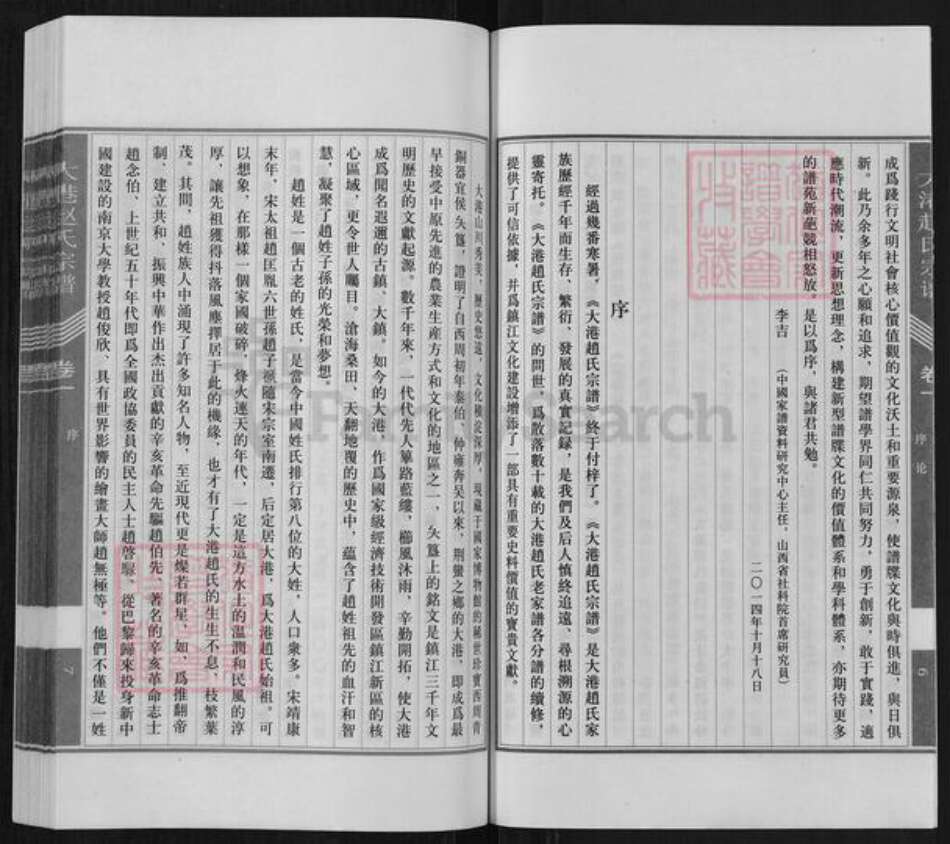 成爲踐行文明社會核心價值觀的文化沃土和重要源泉，使譜牒文化與時俱進，與日俱
新。此乃余多年之心願和追求，期望譜學界同仁共同努力，勇于創新，敢于實踐，適
應時代潮流，更新思想理念，構建新型譜牒文化的價值體系和學科體系，亦期待更多
的譜苑新葩競相怒放。是以爲序，與諸君共勉。
李吉
（中國家譜資料研究中心主任，山西省社科院首席研究員）
二〇一四年十月十八日
序
經過幾番寒暑，《大港趙氏宗譜》終于付梓了。《大港趙氏宗譜》是大港趙氏家
族歷經千年而生存、繁衍、發展的真實記録，是我們及后人慎終追遠、尋根溯源的心
靈寄托。《大港趙氏宗譜》的問世，爲散落數十載的大港趙氏老家譜各分譜的續修，
提供了可信依據，并爲鎮江文化建設增添了一部具有重要史料價值的寶貴文獻。
大港山川秀美，歷史悠遠，文化積淀深厚，現藏于國家博物館的稀世珍寶西周青
銅器宜侯夨簋，證明了自西周初年泰伯、仲雍奔吴以來，荆蠻之鄉的大港，即成爲最
早接受中原先進的農業生産方式和文化的地區之一，夨簋上的銘文是鎮江三千年文
明歷史的文獻起源。數千年來，一代代先人篳路藍縷，櫛風沐雨，辛勤開拓，使大港
成爲聞名遐邇的古鎮、大鎮。如今的大港，作爲國家級經濟技術開發區鎮江新區的核
心區域，更令世人矚目。滄海桑田，天翻地覆的歷史中，蘊含了趙姓祖先的血汗和智
慧，凝聚了趙姓子孫的光榮和夢想。
趙姓是一個古老的姓氏，是當今中國姓氏排行第八位的大姓，人口衆多。宋靖康
末年，宋太祖趙匡胤六世孫趙子禠隨宋宗室南遷，后定居大港，爲大港趙氏始祖。可
以想象，在那樣一個家國破碎，烽火連天的年代，一定是這方水土的温潤和民風的淳
厚，讓先祖獲得抖落風塵擇居于此的機緣，也才有了大港趙氏的生生不息，枝繁葉
茂。其間，趙姓族人中涌現了許多知名人物，至近現代更是燦若群星，如，爲推翻帝
制、建立共和、振興中華作出杰出貢獻的辛亥革命先驅趙伯先、著名的辛亥革命志士
趙念伯、上世紀五十年代即爲全國政協委員的民主人士趙啓騄、從巴黎歸來投身新中
國建設的南京大學教授趙俊欣、具有世界影響的繪畫大師趙無極等。他們不僅是一姓
大港趙氏宗譜
卷一
序
7
卷一
序论
6
FamilySearch